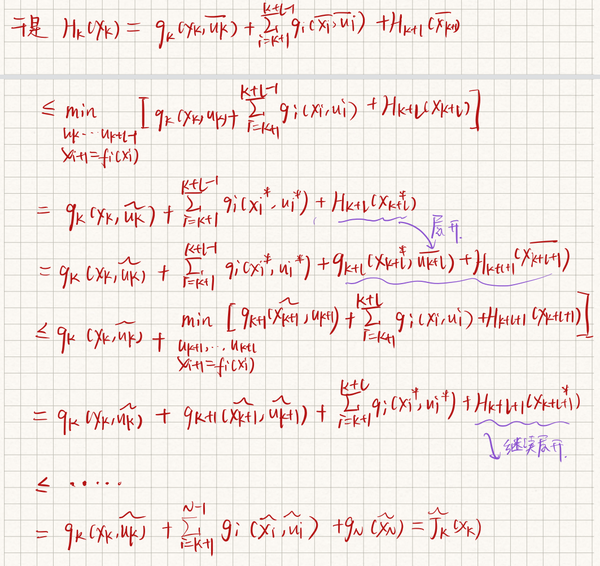 于是 H_k(x_k) = g_k(x_k, \overline{u_k}) + \sum_{i=k+1}^{k+l-1} g_i(\overline{x_i}, \overline{u_i}) + H_{k+l}(\overline{x_{k+l}})
≤ min_{u_k … u_{k+l-1}, x_{i+1}=f_i(x_i)} [g_k(x_k, u_k) + \sum_{i=k+1}^{k+l-1} g_i(x_i, u_i) + H_{k+l}(x_{k+l})]
= g_k(x_k, \widetilde{u_k}) + \sum_{i=k+1}^{k+l-1} g_i(x_i^*, u_i^*) + H_{k+l}(x_{k+l}^*)
展开
= g_k(x_k, \widetilde{u_k}) + \sum_{i=k+1}^{k+l-1} g_i(x_i^*, u_i^*) + g_{k+l}(x_{k+l}^*, \overline{u_{k+l}}) + H_{k+l+1}(\overline{x_{k+l+1}})
≤ g_k(x_k, \widetilde{u_k}) + min_{u_{k+1}, … u_{k+l}, x_{i+1}=f_i(x_i)} [g_{k+1}(\widetilde{x_{k+1}}, u_{k+1}) + \sum_{i=k+1}^{k+l} g_i(x_i, u_i) + H_{k+l+1}(x_{k+l+1})]
= g_k(x_k, \widetilde{u_k}) + g_{k+1}(\widetilde{x_{k+1}}, \widetilde{u_{k+1}}) + \sum_{i=k+1}^{k+l} g_i(x_i^*, u_i^*) + H_{k+l+1}(x_{k+l+1}^*)
继续展开
≤ ·····
= g_k(x_k, \widetilde{u_k}) + \sum_{i=k+1}^{N-1} g_i(\widetilde{x_i}, \widetilde{u_i}) + g_N(\widetilde{x_N}) = \widetilde{J}_k(x_k)